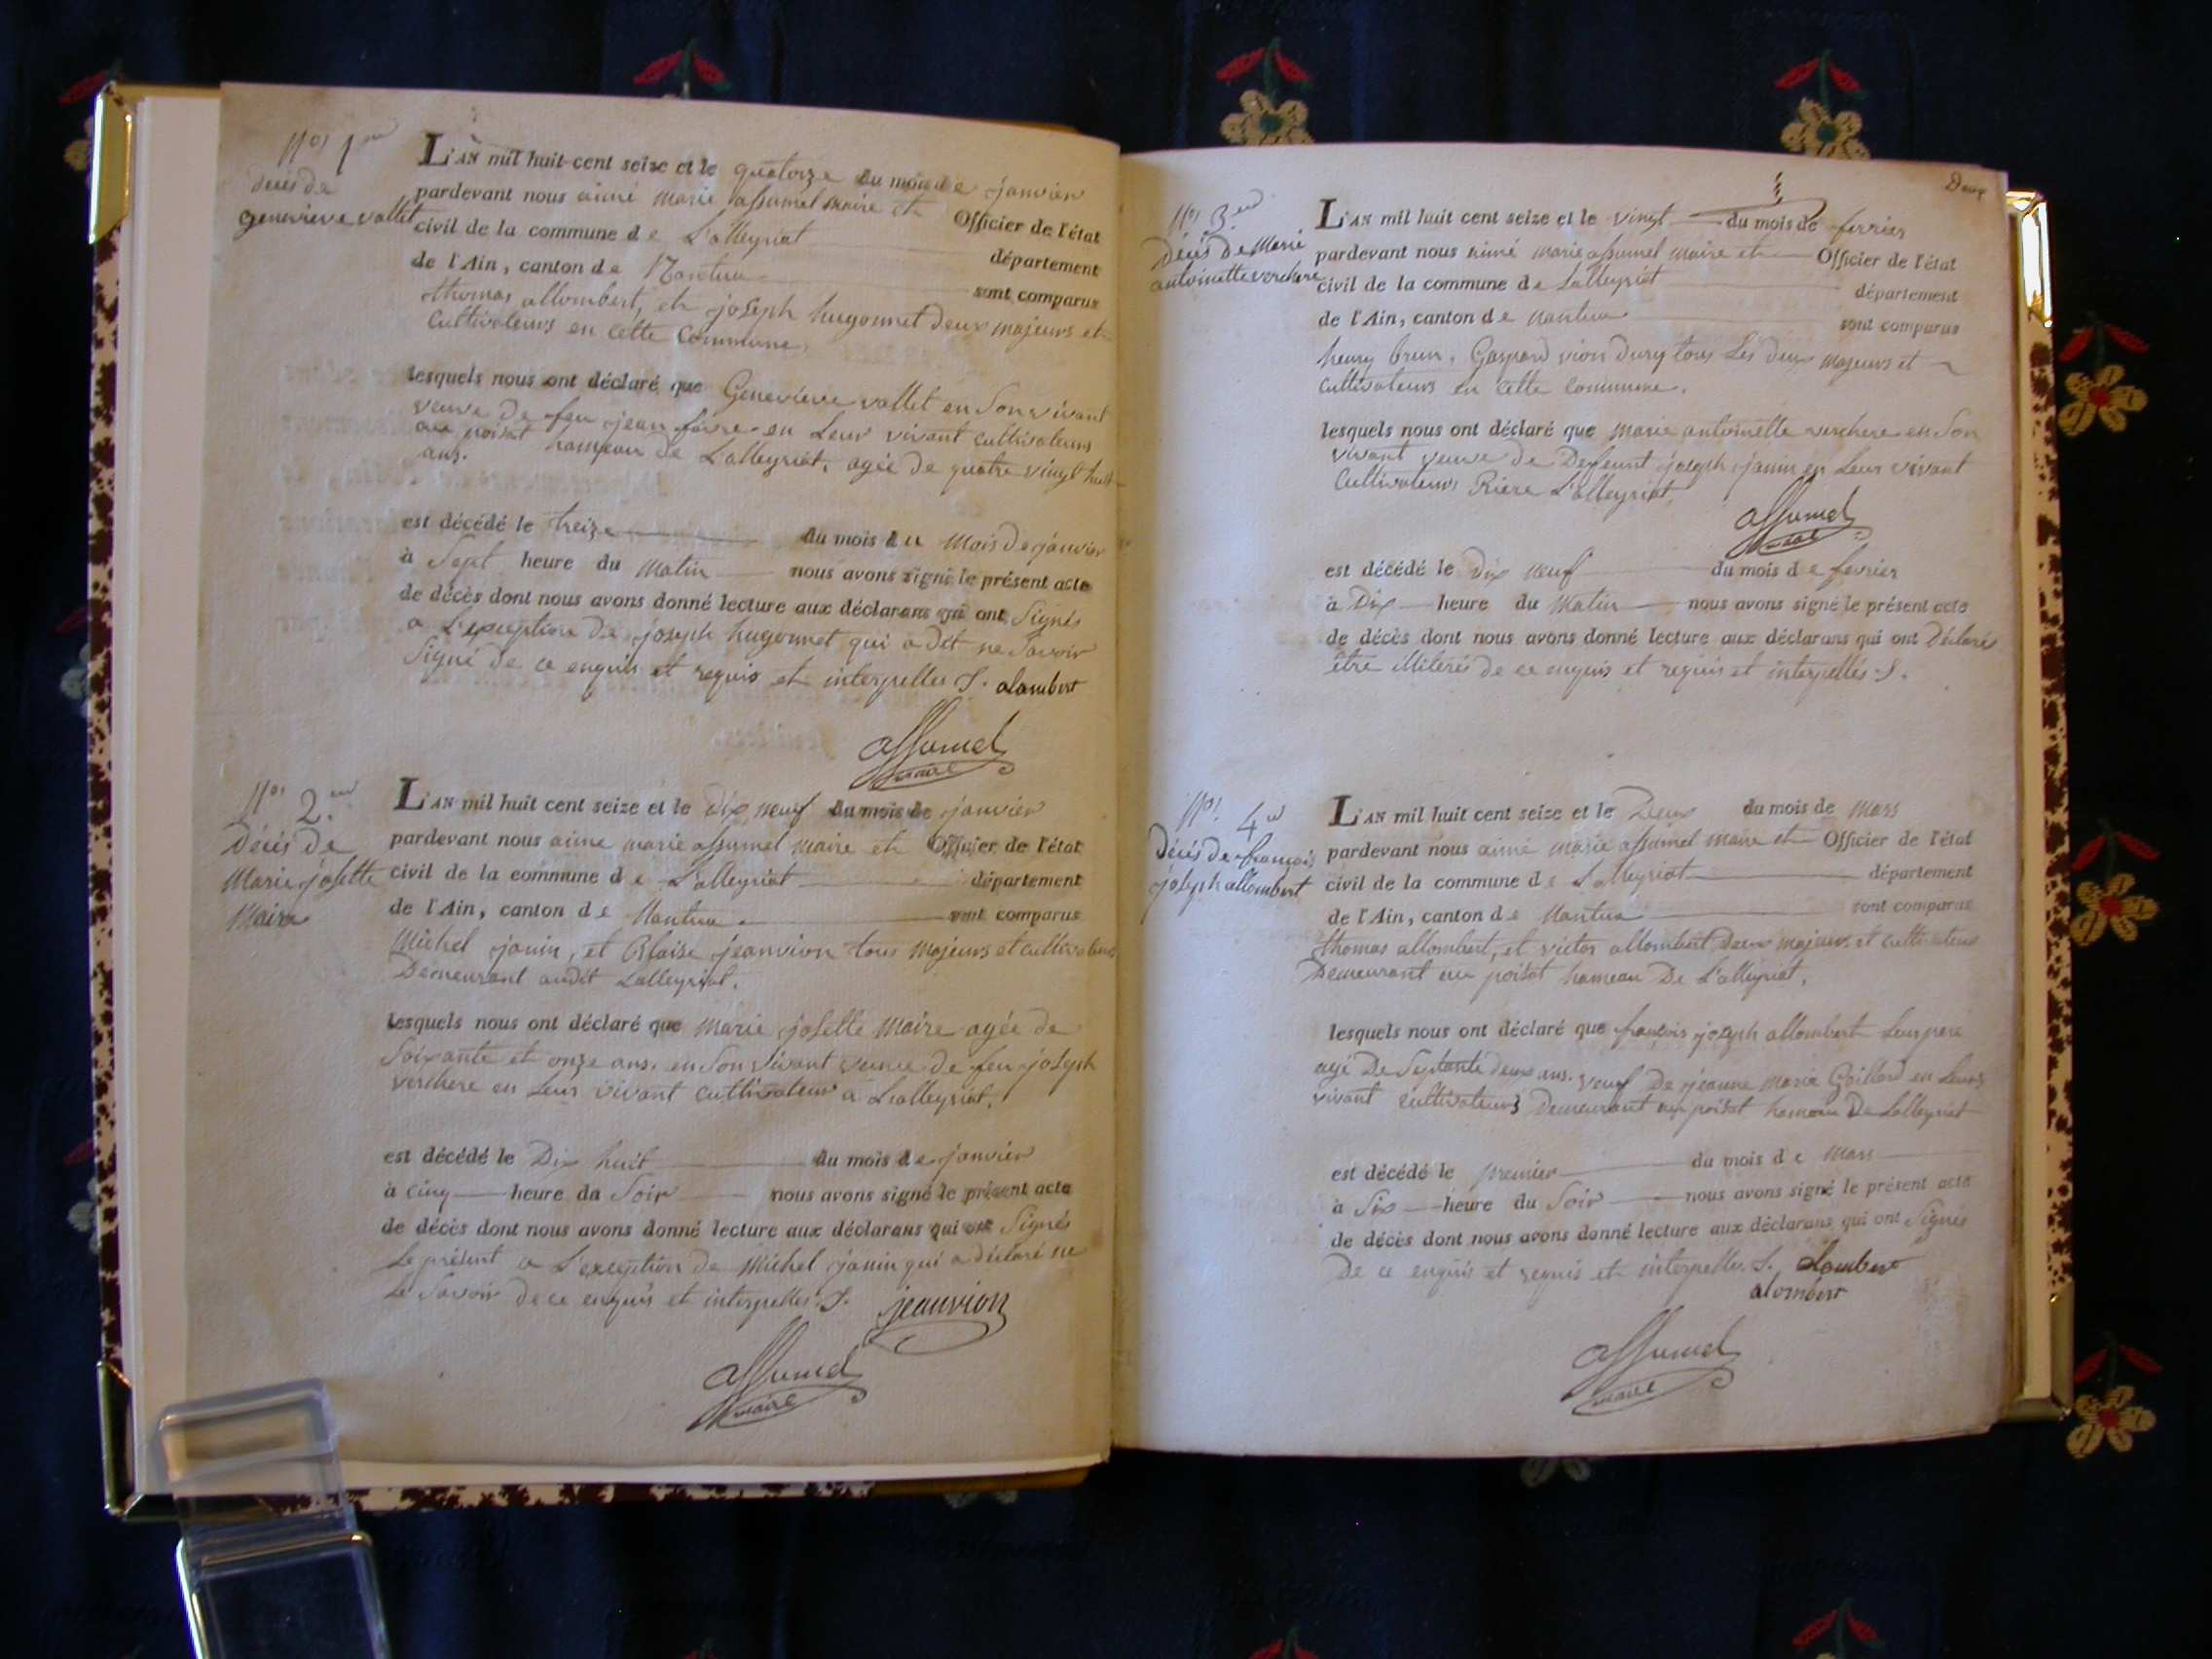 Nos 1er
décès de
genevieve vallet
L'AN mil huit cent seize et le quatorze du mois de janvier
pardevant nous aimé marie assumel maire et Officier de l'état
civil de la commune de L'alleyriat département
de l'Ain, canton de Nantua sont comparus
thomas allombert, et joseph hugonnet deux majeurs et
cultivateurs en cette commune.
lesquels nous ont déclaré que Genevieve vallet en Son vivant
veuve de feu jean favre en Leur vivant cultivateurs
au poisat hameau de Lalleyriat, agée de quatre vingt huit
ans.
est décédé le treize du mois du mois de janvier
à Sept heure du matin nous avons signé le présent acte
de décès dont nous avons donné lecture aux déclarans qui ont Signés
a L'exception de joseph hugonnet qui a dit ne Savoir
Signé de ce enquis et requis et interpellés S. alombert
assumel
maire
Nos 2.
Décès de
Marie josette
Maire
L'AN mil huit cent seize et le dix neuf du mois de janvier
pardevant nous aimé marie assumel maire et Officier de l'état
civil de la commune de L'alleyriat département
de l'Ain, canton de Nantua sont comparus
Michel janin, et Blaise jeanvion tous majeurs et cultivateurs
Demeurant audit Lalleyriat.
lesquels nous ont déclaré que marie josette maire agée de
Soixante et onze ans. en Son vivant veuve de feu joseph
verchere en Leur vivant cultivateur a Lalleyriat.
est décédé le Dix huit du mois de janvier
à cinq heure du Soir nous avons signé le présent acte
de décès dont nous avons donné lecture aux déclarans qui ont Signés
Le présent a L'exception de Michel janin qui a déclaré ne
Le Savoir de ce enquis et interpellés S. jeanvion
assumel
maire
Deux
Nos 3.
Décès De Marie
antoinette verchere
L'AN mil huit cent seize et le vingt du mois de fevrier
pardevant nous aimé marie assumel maire et Officier de l'état
civil de la commune de Lalleyriat département
de l'Ain, canton de Nantua sont comparus
henry brun, Gaspard vion Dury tous Les deux majeurs et
cultivateurs en cette commune.
lesquels nous ont déclaré que marie antoinette verchere en Son
vivant veuve de Defunt joseph janin en Leur vivant
Cultivateurs Riere L'alleyriat.
assumel
maire
est décédé le Dix neuf du mois de fevrier
à Dix heure du Matin nous avons signé le présent acte
de décès dont nous avons donné lecture aux déclarans qui ont Déclaré
être illiterés de ce enquis et requis et interpellés S.
Nos 4
Décès de françois
joseph allombert
L'AN mil huit cent seize et le Deux du mois de mars
pardevant nous aimé marie assumel maire et Officier de l'état
civil de la commune de Lalleyriat département
de l'Ain, canton de Nantua sont comparus
thomas allombert, et victor allombert Deux majeurs et cultivateurs
Demeurant au poisat hameau De L'alleyriat.
lesquels nous ont déclaré que françois joseph allombert Leur pere
agé De Septante deux ans. veuf De jeanne marie Gaillard en Leurs
vivant cultivateurs Demeurant au poisat hameau De Lalleyriat
est décédé le premier du mois de mars
à Six heure du Soir nous avons signé le présent acte
de décès dont nous avons donné lecture aux déclarans qui ont Signés
De ce enquis et requis et interpellés. S. alombert
alombert
assumel
maire